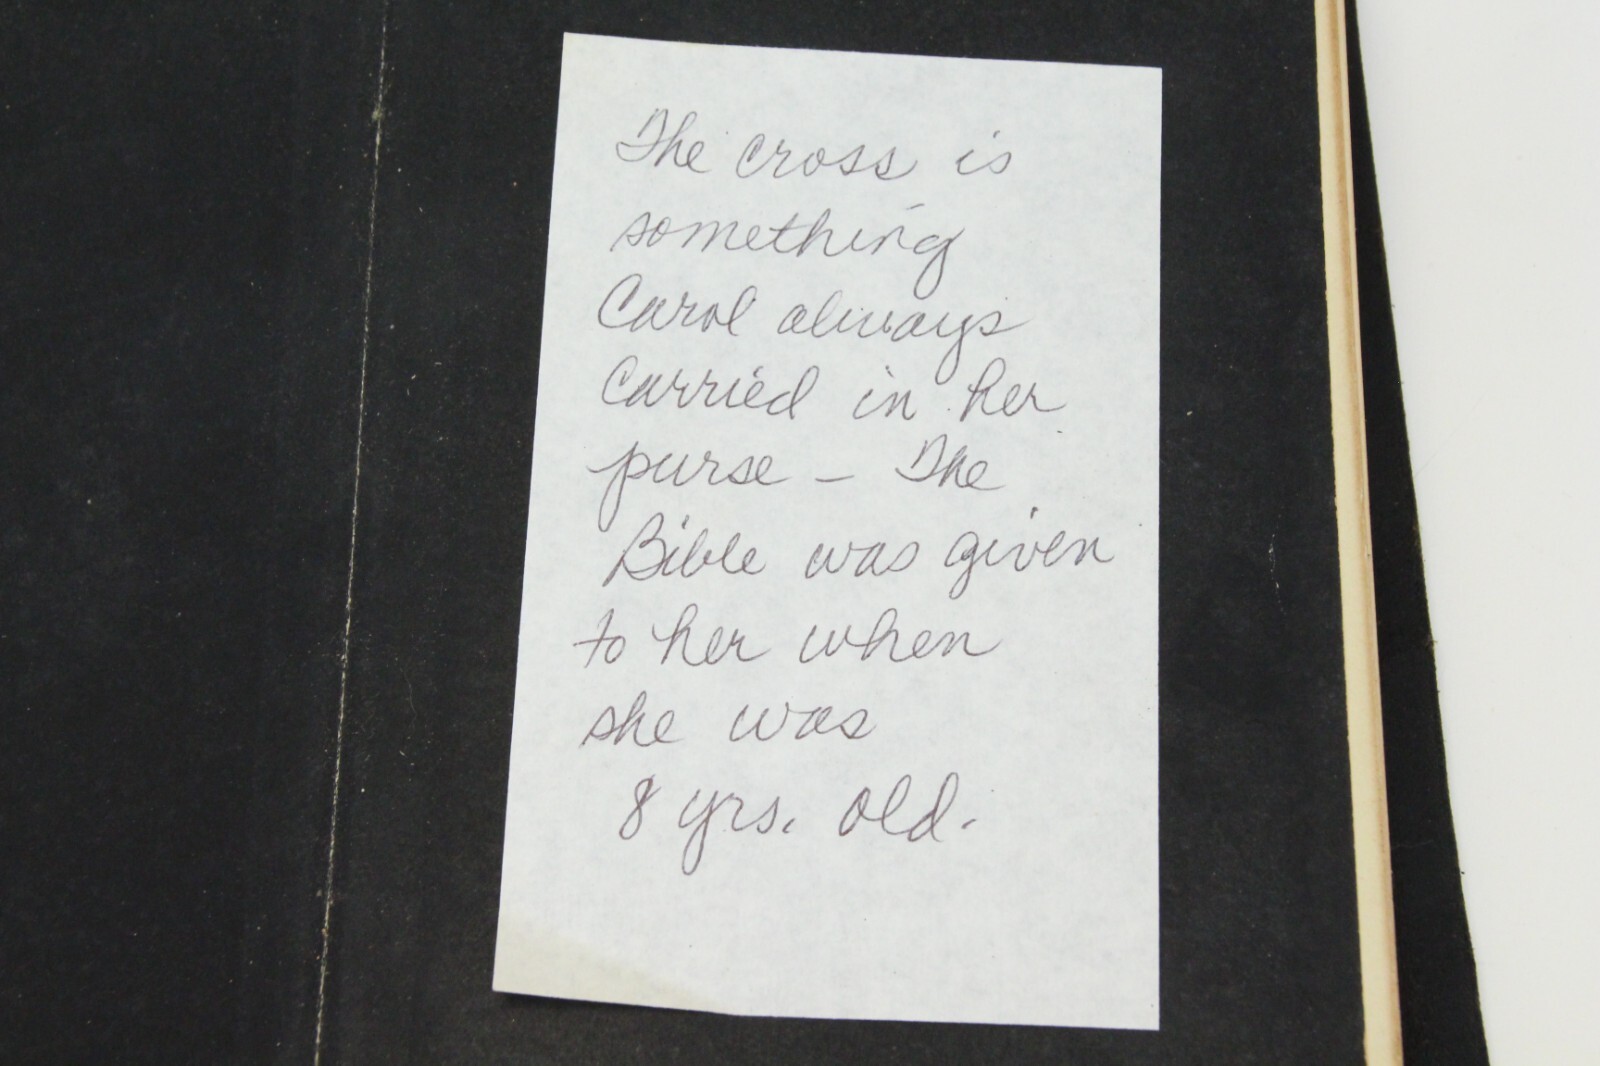 The cross is
something
Carol always
carried in her
purse – The
Bible was given
to her when
she was
8 yrs. old.